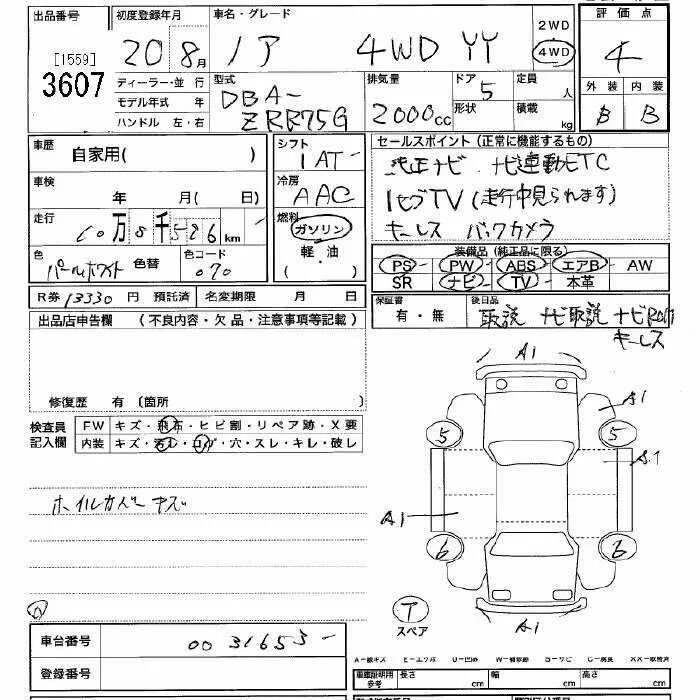 出品番号 初度登録年月 車名・グレード 評価点
[1559]
3607
20 8月 ノア 4WD YY 2WD 4WD 4
ディーラー・並行 型式 排気量 ドア 定員 外装 内装
モデル年式 年 DBA- 2000cc 5 人 B B
ハンドル 左・右 ZRR75G 形状 積載 kg
車歴 自家用( ) シフト 1AT セールスポイント(正常に機能するもの)
純正ナビ ナビ連動ETC
車検 年 月(日) 冷房 AAC 1セグTV(走行中見られます)
走行 万 千526km 燃料 ガソリン キーレス バックカメラ
軽・油 装備品(純正品に限る)
色 パールホワイト 色替 色コード 070 ( ) PS PW ABS エアB AW
SR ナビ TV 本革
R券 13330円 預託済 名変期限 月 日 保証書 有・無 後日品 取説 ナビ取説 ナビROM
キーレス
出品店申告欄 (不良内容・欠品・注意事項等記載)
修復歴 有(箇所 )
検査員記入欄 FW キズ・飛石・ヒビ割・リペア跡・X要
内装 キズ・汚レ・コゲ・穴・スレ・キレ・破レ
ホイルカバーキズ
A1
A1
5 5
A1
A1
6 6
T
スペア
A1
車台番号 0031653-
登録番号
A-線キズ E-エクボ U-凹み W-補修跡 S-サビ C-腐食 XX-交換済
車庫証明用参考 長さ cm 幅 cm 高さ cm